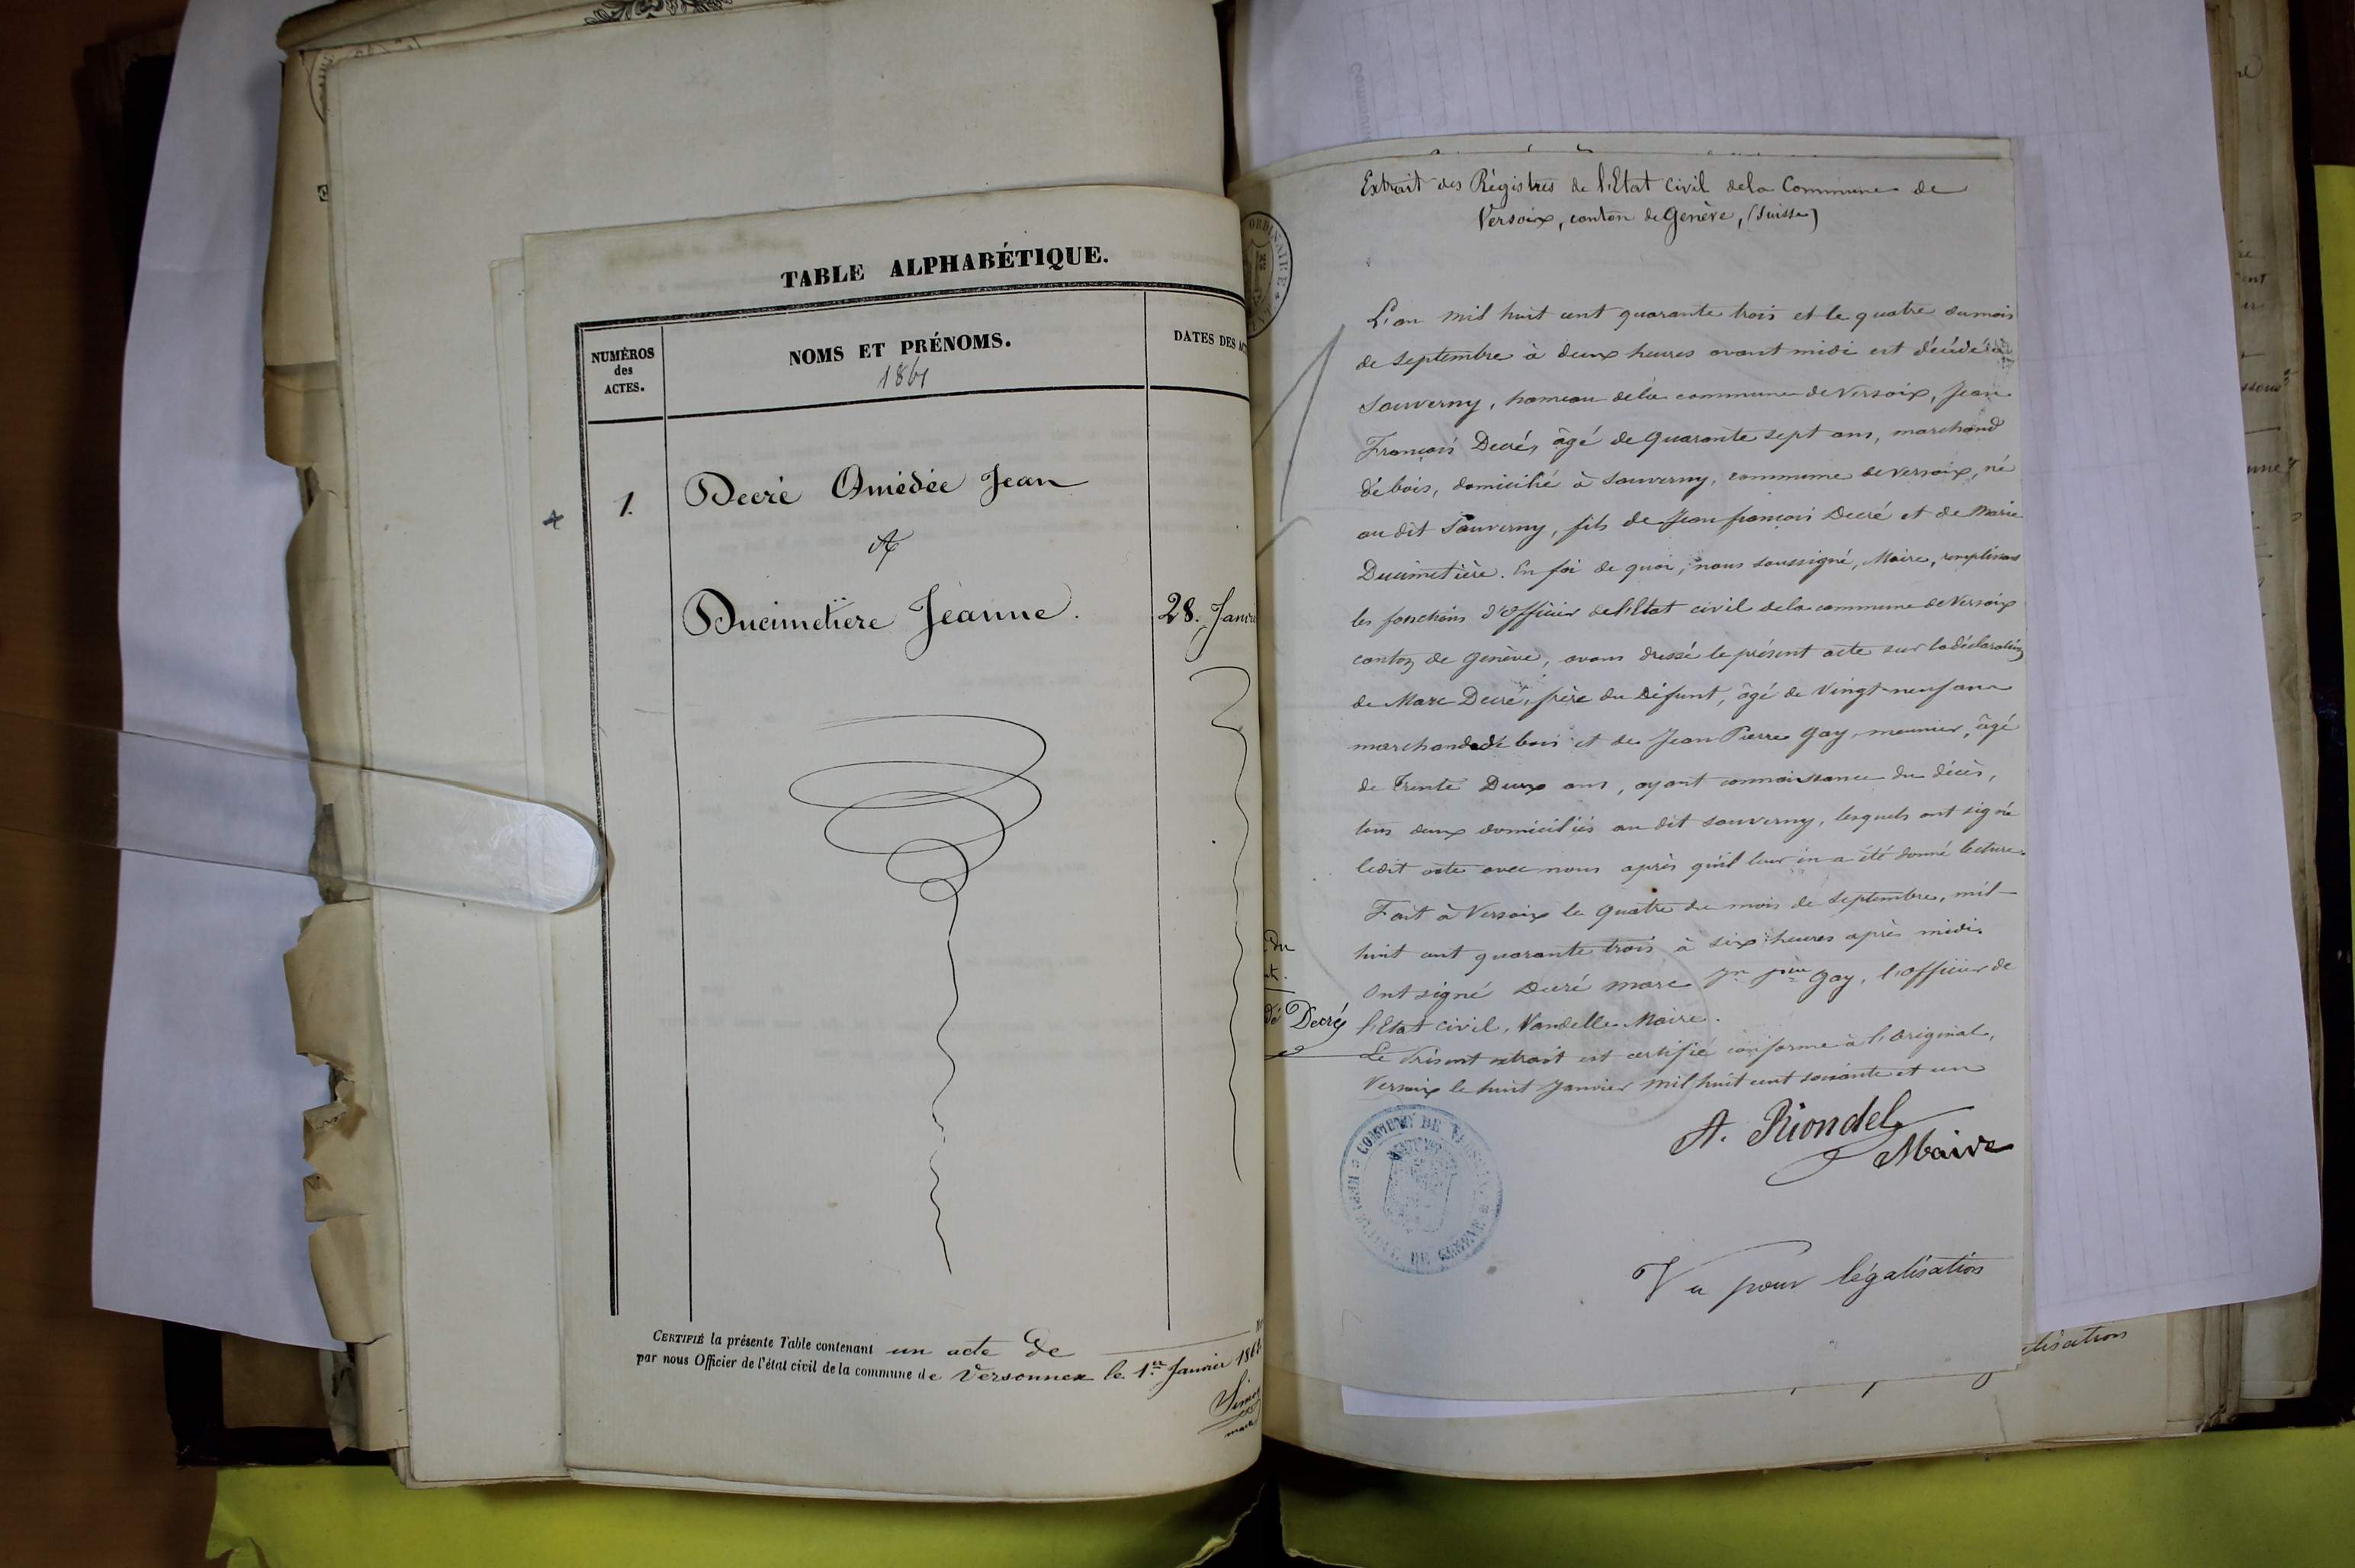 TABLE ALPHABÉTIQUE.
NUMÉROS
des
ACTES.
NOMS ET PRÉNOMS.
1861
DATES DES AC
1.
Decré Amédée Jean
&
Ducimetière Jeanne.
28. Janvi
CERTIFIÉ la présente Table contenant un acte de
par nous Officier de l'état civil de la commune de Versonnex le 1er Janvier 186
Simon
maire
ORDINAIRE
Extrait des Régistres de l'Etat civil de la Commune de
Versoix, canton de Genève, (Suisse)
L'an mil huit cent quarante trois et le quatre du mois
de Septembre à deux heures avant midi est décédé à
Sauverny, hameau de la commune de Versoix, Jean
François Decrés âgé de quarante sept ans, marchand
de bois, domicilié à Sauverny, commune de Versoix, né
au dit Sauverny, fils de Jean françois Decré et de Marie
Ducimetière. En foi de quoi, nous soussigné, Maire, remplissant
les fonctions d'officier de l'Etat civil de la commune de Versoix
canton de Genève, avons dressé le présent acte sur la déclaration
de Marc Decré, frère du défunt, âgé de vingt-neuf ans
marchand de bois et de Jean Pierre Gay, meunier, âgé
de Trente Deux ans, ayant connaissance du décès,
tous deux domiciliés au dit Sauverny, lesquels ont signé
ledit acte avec nous après qu'il leur en a été donné lecture.
Fait à Versoix le Quatre du mois de Septembre, mil
huit cent quarante trois à six heures après midi.
Ont signé Decré Marc Jn Pierre Gay, l'officier de
l'Etat civil, Vandelle Maire.
Le Présent extrait est certifié conforme à l'original,
Versoix le huit Janvier mil huit cent soixante et un
A. Riondel
Maire
COMMUNE DE VERSOIX
DE GENEVE
Vu pour légalisation
du
dé Decrés
élisation